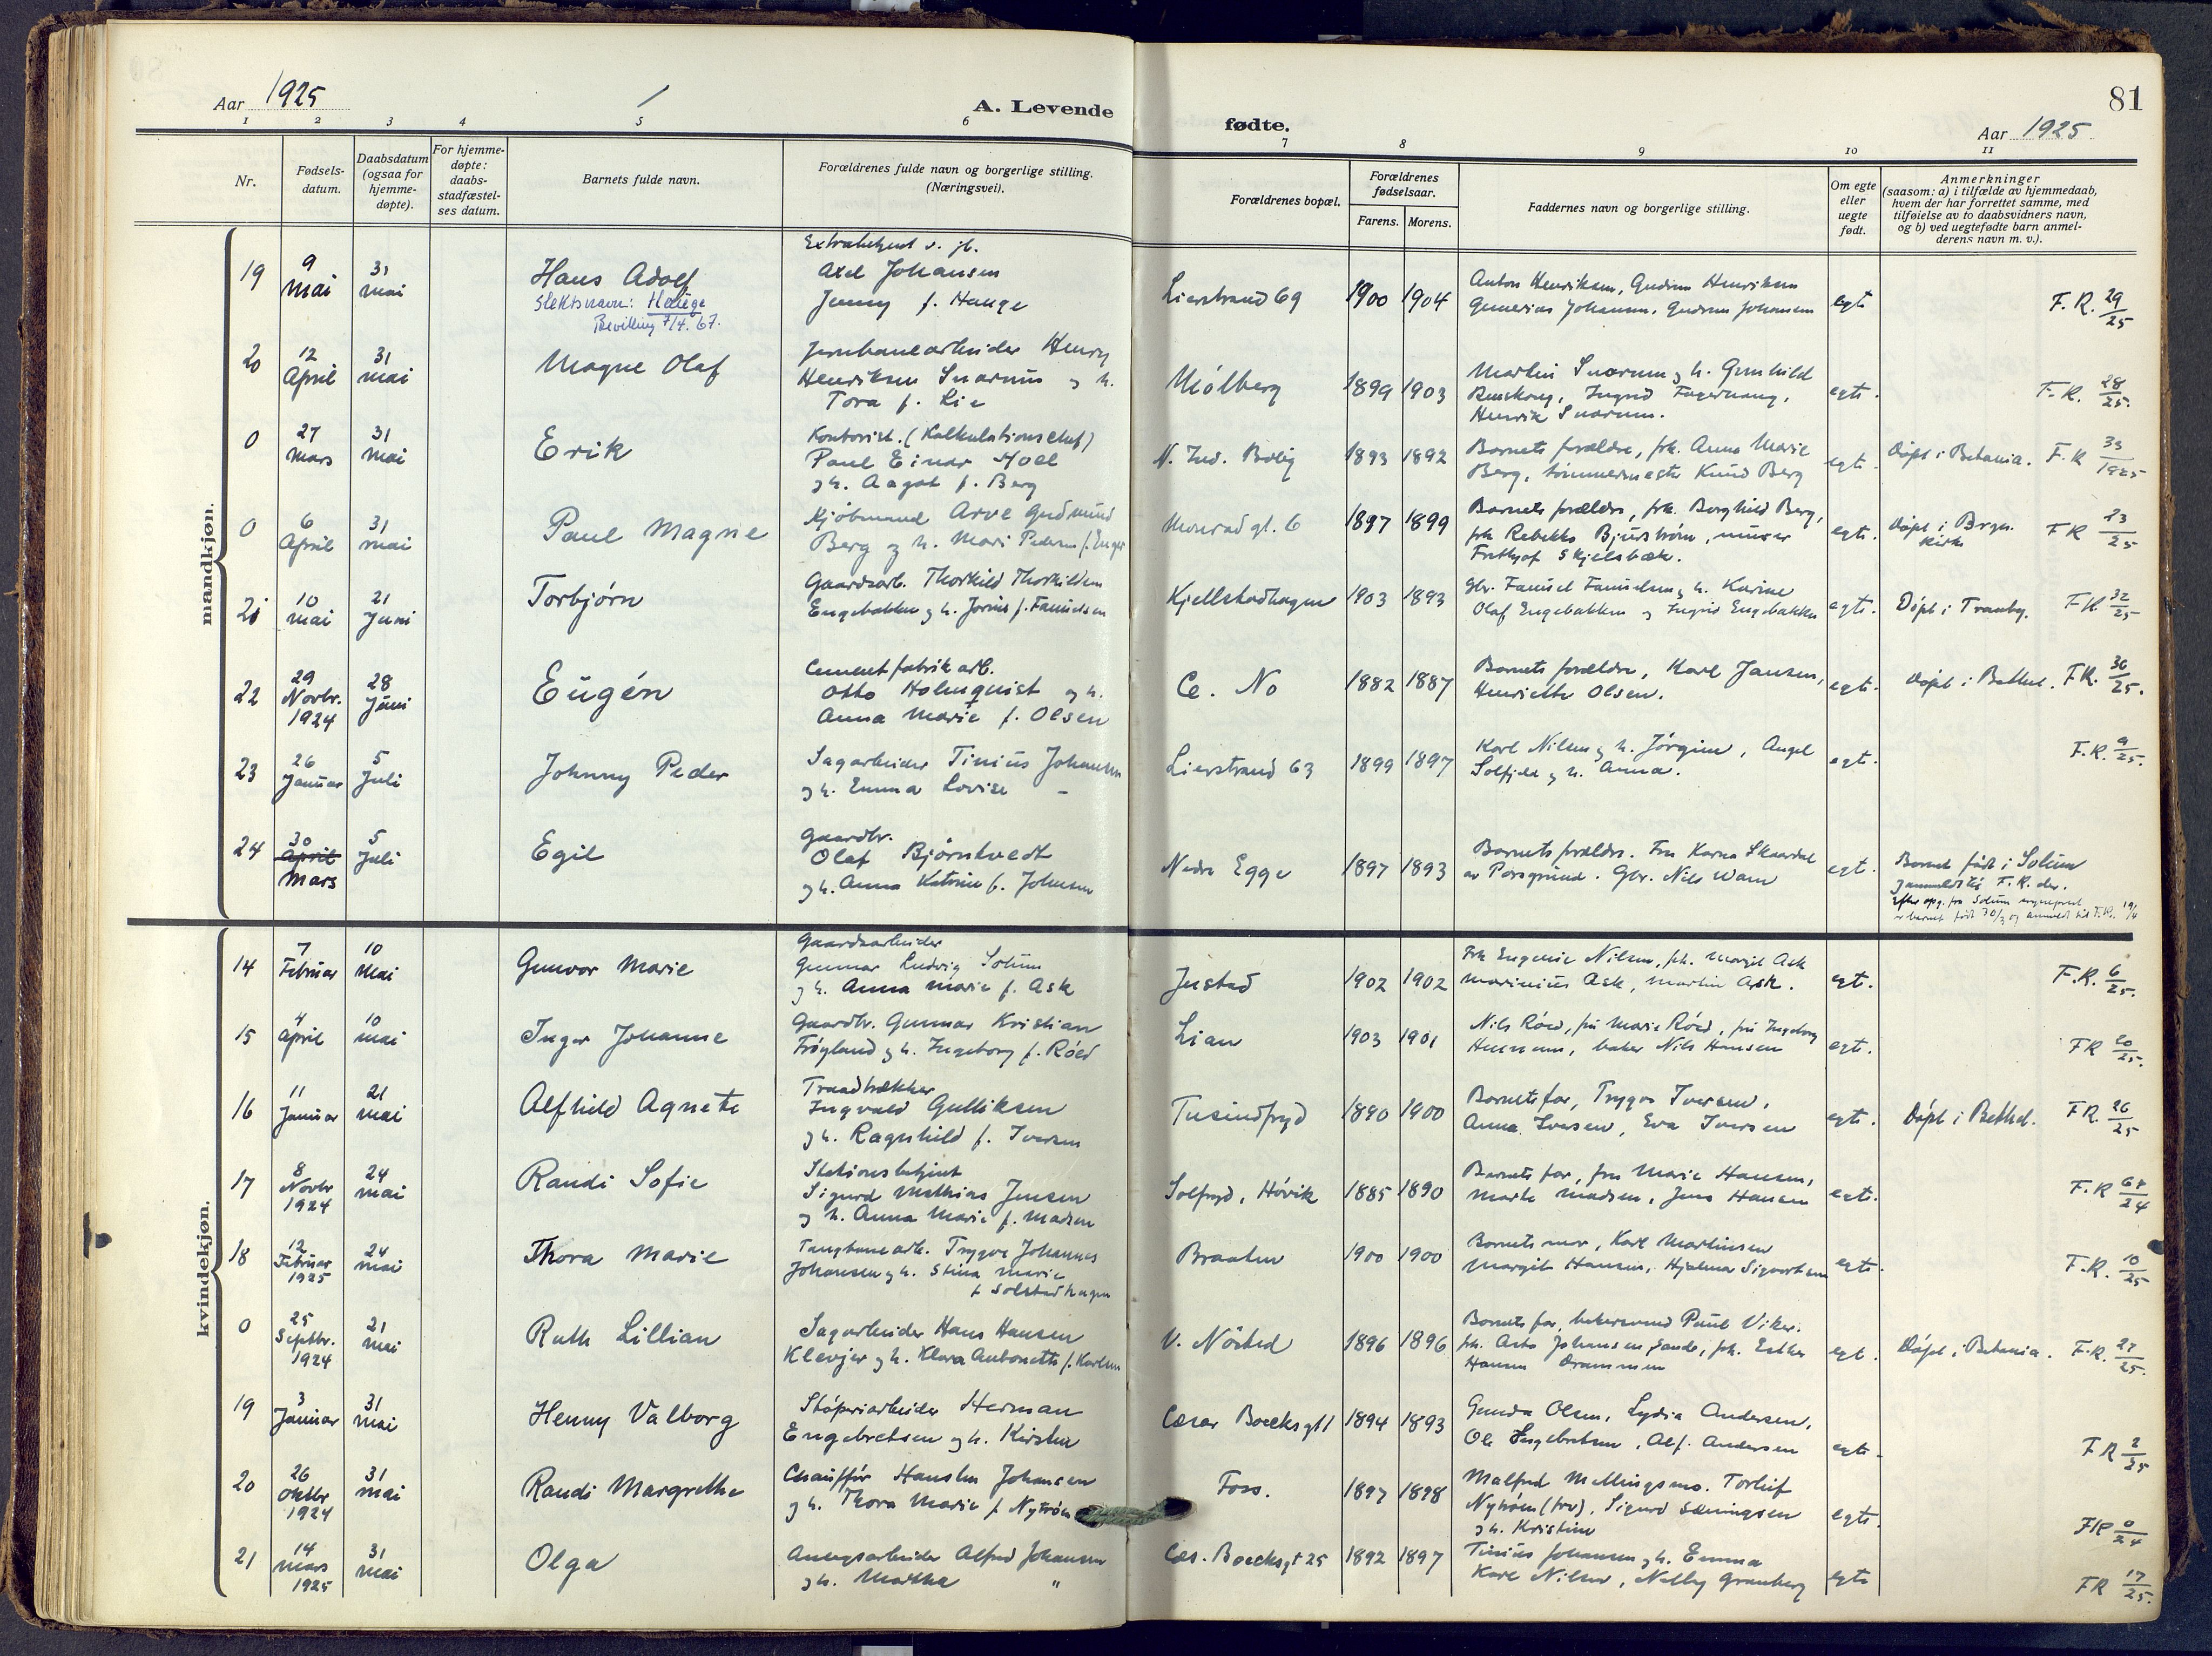 81
Aar 1925
A. Levende
fødte.
Aar 1925
1 2 3 4 5 6 7 8 9 10 11
Nr.
Fødsels-
datum.
Daabsdatum
(ogsaa for
hjemme-
døpte).
For hjemme-
døpte:
daabs-
stadfæstel-
ses datum.
Barnets fulde navn.
Forældrenes fulde navn og borgerlige stilling.
(Næringsvei).
Forældrenes bopæl.
Forældrenes
fødselsaar.
Farens. Morens.
Faddernes navn og borgerlige stilling.
Om egte
eller
uegte
født.
Anmerkninger
(saasom: a) i tilfælde av hjemmedaab,
hvem der har forrettet samme, med
tilføielse av to daabsvidners navn,
og b) ved uegtefødte barn anmel-
derens navn m. v.).
mandkjøn.
19
9
Mai
31
mai
Hans Adolf
Slektsnavn: Hauge
Bevilling 7/4. 67.
Extrabetjent v. jb.
Axel Johansen
Jenny f. Hauge
Lierstrand 69
1900 1904
Anton Henriksen, Gudrun Henriksen
Johansen, Gudrun Johansen
egte
F. R. 29/25
20
12
April
31
mai
Magne Olaf
Jernbanearbeider Henry
Henriksen Snarum og h.
Tora f. Lie
Mølberg
1899 1903
Martin Snarum og h. Gunhild
Ingrid
Henrik Snarum.
egte.
F. R. 28/25.
0
27
Mars
31
mai
Erik
Kontorist. (Kalkulationschef)
Paul Einar Moel
og h. Aagot f. Berg
N. Ind. Bolig
1893 1892
Barnets forældre, frk. Anna Marie
Berg, tømmermester Knud Berg
egte.
Døpt i Betania. F. R 33/1925
0
6
April
31
mai
Paul Magne
Kjøbmand Arve Gudmund
Berg og h. Mari Pedersen f. Enger
Monradgt. 6
1897 1899
Barnets forældre, frk. Borghild Berg,
frk Rebekka Bjurstrøm, murer
Frithjof Skjelsbæk.
egte.
Døpt i Brgn.
kirke
F R 23/25
21
10
mai
21
Juni
Torbjørn
Gaardsarb. Thorkild Thorkildsen
Engebakken og h. Jorine f. Samuelsen
Kjellstadhagen
1903 1893
Gbr. Samuel Samuelsen og h. Karine
Olaf Engebakken og Ingrid Engebakken
egte.
Døpt i Tranby. F R 32/25
22
29
Novbr.
1924
28
Juni
Eugén
Cementfabrikarb.
Otto Holmquist og h.
Anna Marie f. Olsen
Ce. No
1882 1887
Barnets forældre, Karl Jansen,
Henriette Olsen.
egte.
Døpt i Bethel. F.R. 36/25.
23
26
Januar
5
Juli
Johnny Peder
Sagarbeider Tinius Johansen
og h. Emma Lovise -
Lierstrand 63
1899 1897
Karl Nilsen og h. Jørgine, Angel
Solfjeld og h. Anna.
egte.
F.R. 9/25.
24
30
April
Mars
5
Juli
Egil
Gaardbr.
Olaf Bjørntvedt
og h. Anna Katrine f. Johnsen
Nedre Egge
1897 1893
Barnets forældre. Fru Karna Skaardal
av Porsgrund. Gbr. Nils Wam
egt.
Barnet født i Solum
og anmeldt til F.R. der.
Efter opg. fra Solum sogneprest
er barnet født 30/3 og anmeldt til F.R. 19/4
kvindekjøn.
14
7
Februar
10
Mai
Gunvor Marie
Gaardsarbeider
Gunnar Ludvig Solum
og h. Anna Marie f. Ask
Justad
1902 1902
Frk Eugenie Nilsen, frk. Margit Ask
Marinius Ask, Martin Ask.
egt.
F.R. 6/25.
15
4
April
10
mai
Inger Johanne
Gaardbr. Gunnar Kristian
Frøyland og h. Ingeborg f. Röed
Lian
1903 1901
Nils Röed, fru Marie Röed, fru Ingeborg
baker Nils Hansen
egte.
FR 20/25.
16
11
Januar
21
mai
Alfhild Agnete
Traadtrækker
Ingvald Gulliksen
og h. Ragnhild f. Iversen
Tusindfryd
1890 1900
Barnets far, Trygve Iversen,
Anna Iversen, Eva Iversen
egte.
Døpt i Bethel. F.R. 26/25
17
8
Novbr
1924
24
mai
Randi Sofie
Stationsbetjent
Sigurd Mathias Jensen
og h. Anna Marie f. Madsen
Solfryd, Høvik
1885 1890
Barnets far, fru Marie Hansen,
Marte Madsen, Jens Hansen
egte.
F.R 64/24
18
12
Februar
1925
24
mai
Thora Marie
Langbanearb. Trygve Johannes
Johansen og h. Stina Marie
f Solstadhagen
Braaten
1900 1900
Barnets mor, Karl Martinsen
Margit Hansen, Hjalmar Sigvartsen
egte.
F.R. 10/25
0
25
Septbr.
1924
21
mai
Ruth Lillian
Sagarbeider Hans Hansen
Klevjer og h. Klara Antonette f. Karlsen
V. Nøsted
1896 1896
Barnets far, bakersvend Paul Viker.
frk. Asta Johansen, Sande, frk. Esther
Hansen Drammen
egt.
Døpt i Betania. F.R. 27/25.
19
3
Januar
31
mai
Henny Valborg
Støperiarbeider Herman
Engebretsen og h. Kirsten
Cæsar Boecksgt 1
1894 1893
Gunda Olsen, Lydia Andersen,
Ole Engebretsen, Alf. Andersen
egte.
F R 2/25
20
26
Oktbr
1924
31
mai
Randi Margrethe
Chauffør Hanslen Johansen
og h. Thora Marie f. Nytrøen
Foss.
1897 1898
Malfred Mellingsmo. Torleif
Nytrøen (trv), Sigurd Sæningsen
og h. Kristine
egte.
FR 0/24
21
14
mars
1925
31
mai
Olga
Anlægsarbeider Alfred Johansen
og h. Martha "
Cæs. Boecksgt 25
1892 1897
Tinius Johansen og h. Emma
Karl Nilsen, Nelly Granberg
egte
FR 17/25.